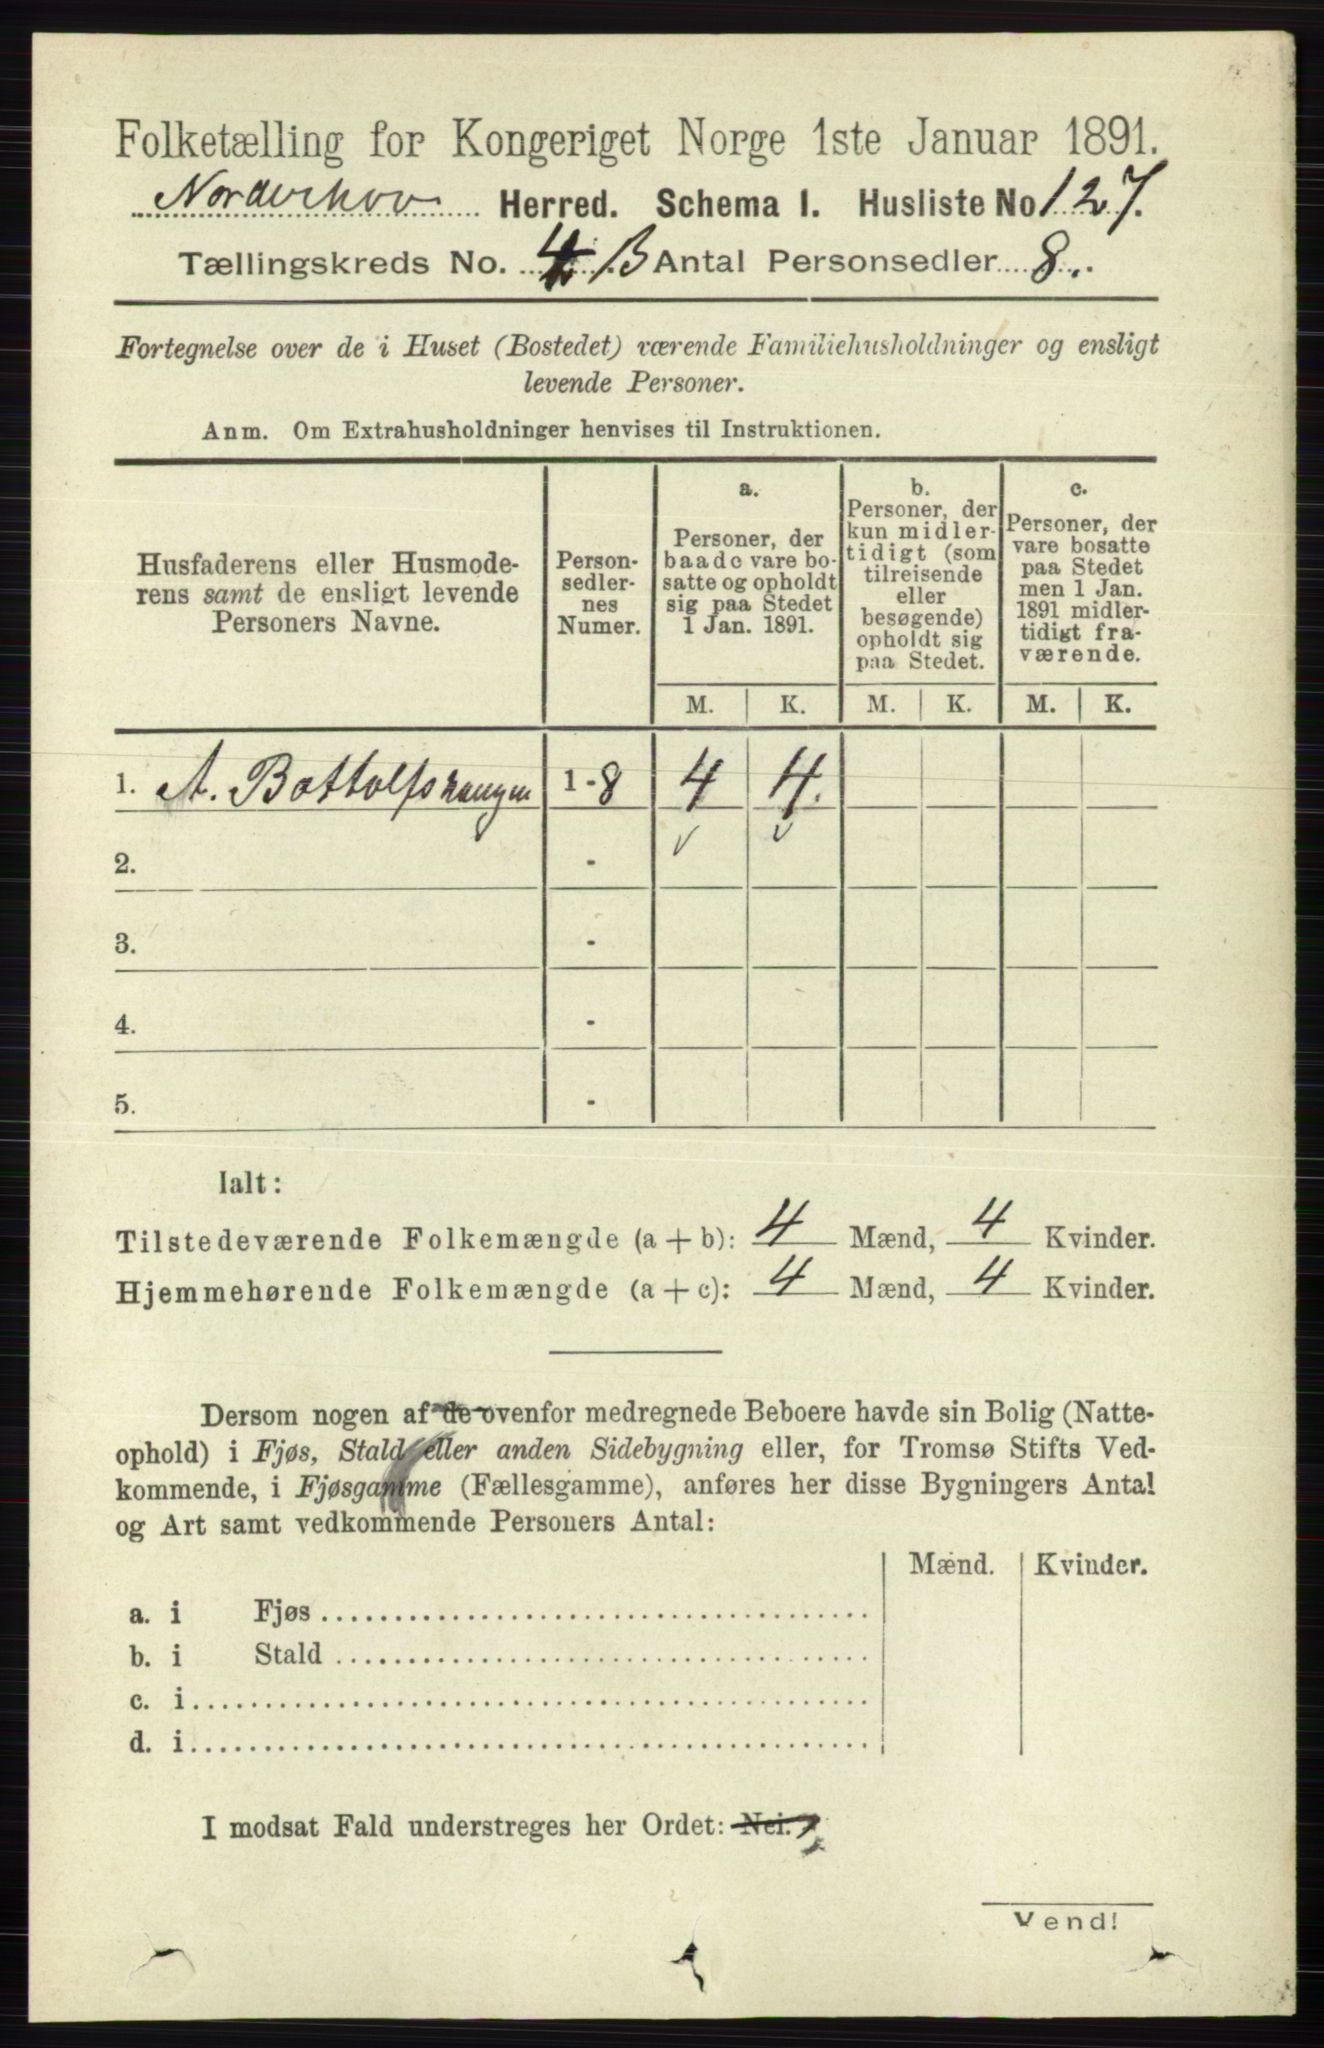 Folketælling for Kongeriget Norge 1ste Januar 1891.
Norderhov Herred. Schema I. Husliste No 127.
Tællingskreds No. 4 B Antal Personsedler 8.
Fortegnelse over de i Huset (Bostedet) værende Familiehusholdninger og ensligt
levende Personer.
Anm. Om Extrahusholdninger henvises til Instruktionen.
Husfaderens eller Husmode-
rens samt de ensligt levende
Personers Navne.
Person-
sedler-
nes
Numer.
a.
Personer, der
baade vare bo-
satte og opholdt
sig paa Stedet
1 Jan. 1891.
b.
Personer, der
kun midler-
tidigt (som
tilreisende
eller
besøgende)
opholdt sig
paa Stedet.
c.
Personer, der
vare bosatte
paa Stedet
men 1 Jan.
1891 midler-
tidigt fra-
værende.
M. K. M. K. M. K.
1. A. 1-8 4 4.
2. -
3. -
4. -
5. -
Ialt:
Tilstedeværende Folkemængde (a + b): 4 Mænd, 4 Kvinder.
Hjemmehørende Folkemængde (a + c): 4 Mænd, 4 Kvinder.
Dersom nogen af de ovenfor medregnede Beboere havde sin Bolig (Natte-
ophold) i Fjøs, Stald eller anden Sidebygning eller, for Tromsø Stifts Ved-
kommende, i Fjøsgamme (Fællesgamme), anføres her disse Bygningers Antal
og Art samt vedkommende Personers Antal:
Mænd. Kvinder.
a. i Fjøs
b. i Stald
c. i
d. i
I modsat Fald understreges her Ordet: Nei.
Vend!